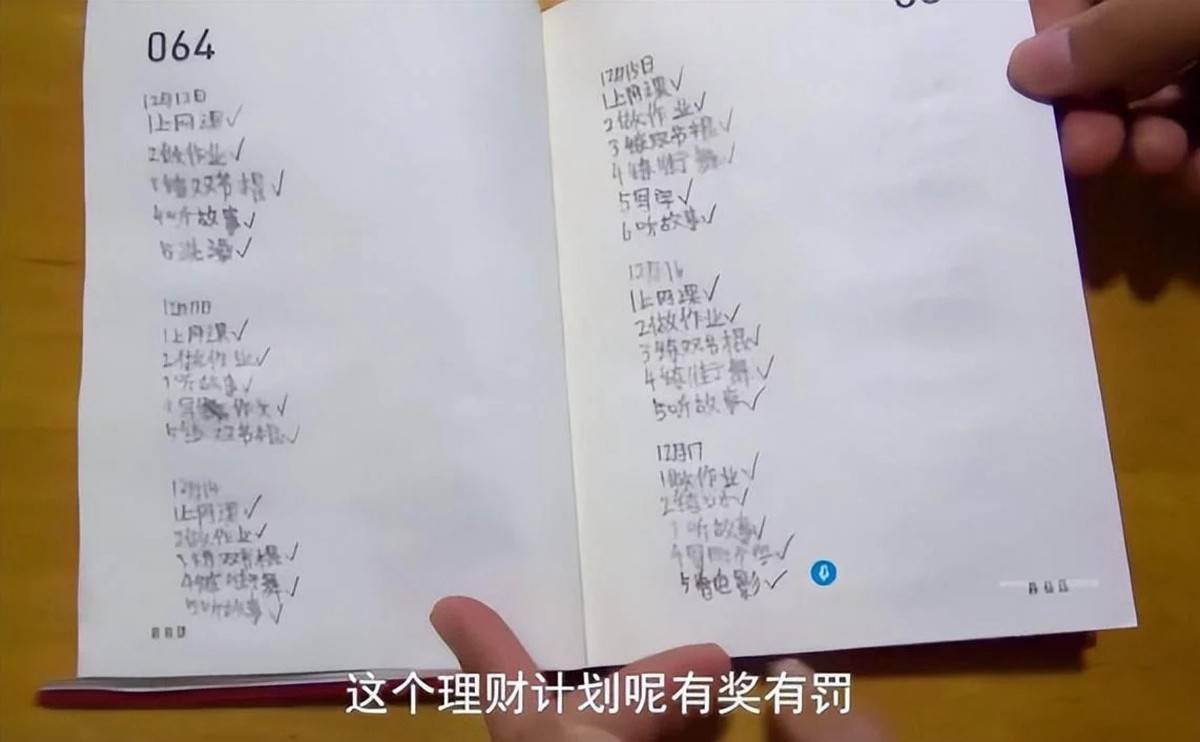 064
12月12日
1上网课✓
2做作业✓
3练双节棍✓
4听故事✓
5洗澡✓
1上网课✓
2做作业✓
3听故事✓
5练双节棍✓
12月14
1上网课✓
2做作业✓
3练双节棍✓
4练街舞✓
5听故事✓
12月15日
1上网课✓
2做作业✓
3练双节棍✓
4练街舞✓
5写字✓
6听故事✓
12月16
1上网课✓
2做作业✓
3练双节棍✓
4练街舞✓
5听故事✓
12月17
1做作业✓
3听故事✓
5看电影✓
这个理财计划呢有奖有罚